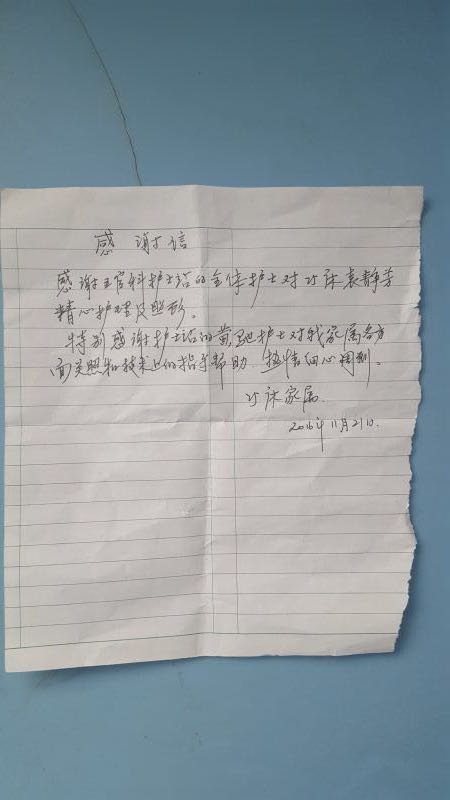 感谢信
感谢五官科护士站的全体护士对 床袁静芳
精心护理及照顾。
特别感谢护士站的黄 护士对我家属各方
面关照和技术上的指导帮助 热情细心周到。
床家属
2016年11月21日.